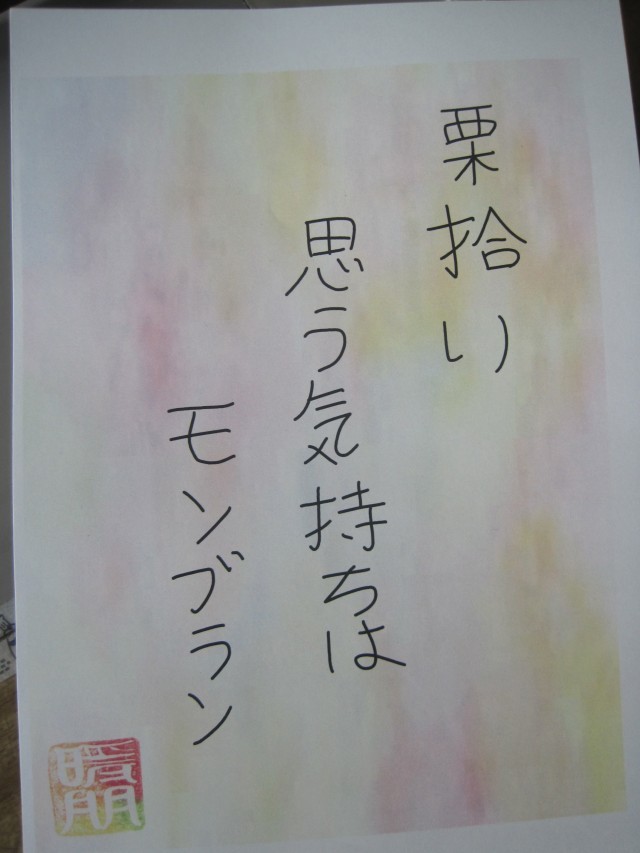 栗拾い
思う気持ちは
モンブラン